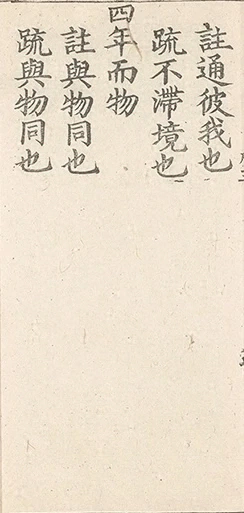 註通彼我也
疏不滯境也
四年而物
註與物同也
疏與物同也